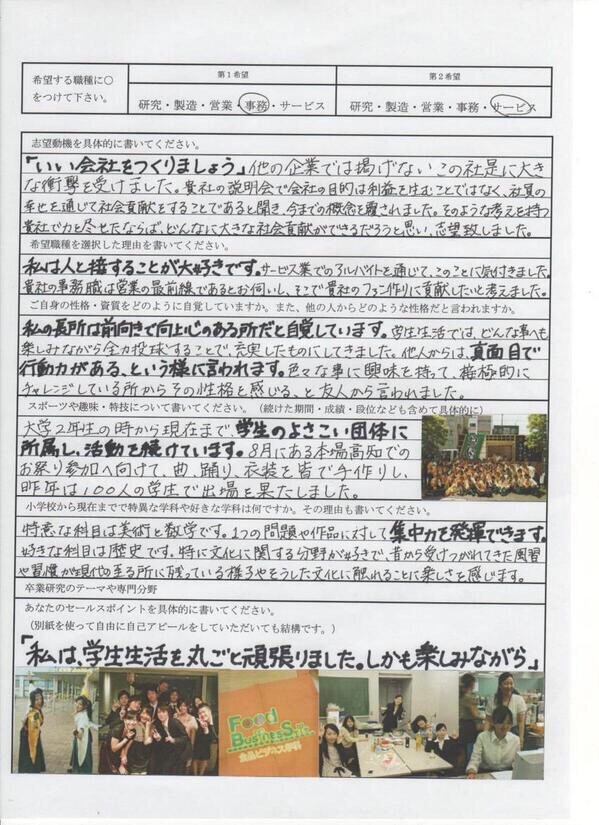 希望する職種に○
をつけて下さい。
第1希望
第2希望
研究・製造・営業・事務・サービス
研究・製造・営業・事務・サービス
志望動機を具体的に書いてください。
「いい会社をつくりましょう」他の企業では掲げないこの社是に大き
な衝撃を受けました。貴社の説明会で会社の目的は利益を生むことではなく、社員の
幸せを通じて社会貢献をすることであると聞き、今までの概念を覆されました。そのような考えを持つ
貴社で力を尽せたならば、どんなに大きな社会貢献ができるだろうと思い、志望致しました。
希望職種を選択した理由を書いてください。
私は人と接することが大好きです。サービス業でのアルバイトを通じて、このことに気付きました。
貴社の事務職は営業の最前線であるとお伺いし、そこで貴社のファン作りに貢献したいと考えました。
ご自身の性格・資質をどのように自覚していますか。また、他の人からどのような性格だと言われますか。
私の長所は前向きで向上心のある所だと自覚しています。学生生活では、どんな事へも
楽しみながら全力投球することで、充実したものにしてきました。他人からは、真面目で
行動力がある、という様に言われます。色々な事に興味を持って、積極的に
チャレンジしている所からその性格を感じる、と友人から言われました。
スポーツや趣味・特技について書いてください。（続けた期間・成績・段位なども含めて具体的に）
大学2年生の時から現在まで学生のよさこい団体に
所属し、活動を続けています。8月にある本場高知での
お祭り参加へ向けて、曲、踊り、衣装を皆で手作りし、
昨年は100人の学生で出場を果たしました。
小学校から現在までで特異な学科や好きな学科は何ですか。その理由も書いてください。
得意な科目は美術と数学です。1つの問題や作品に対して集中力を発揮できます。
好きな科目は歴史です。特に文化に関する分野が好きで、昔から受けつがれてきた風習
や習慣が現代の至る所に残っている様子やそうした文化に触れることに楽しさを感じます。
卒業研究のテーマや専門分野
あなたのセールスポイントを具体的に書いてください。
（別紙を使って自由に自己アピールをしていただいても結構です。）
「私は、学生生活を丸ごと頑張りました。しかも楽しみながら」
Food
Business
食品ビジネス学科